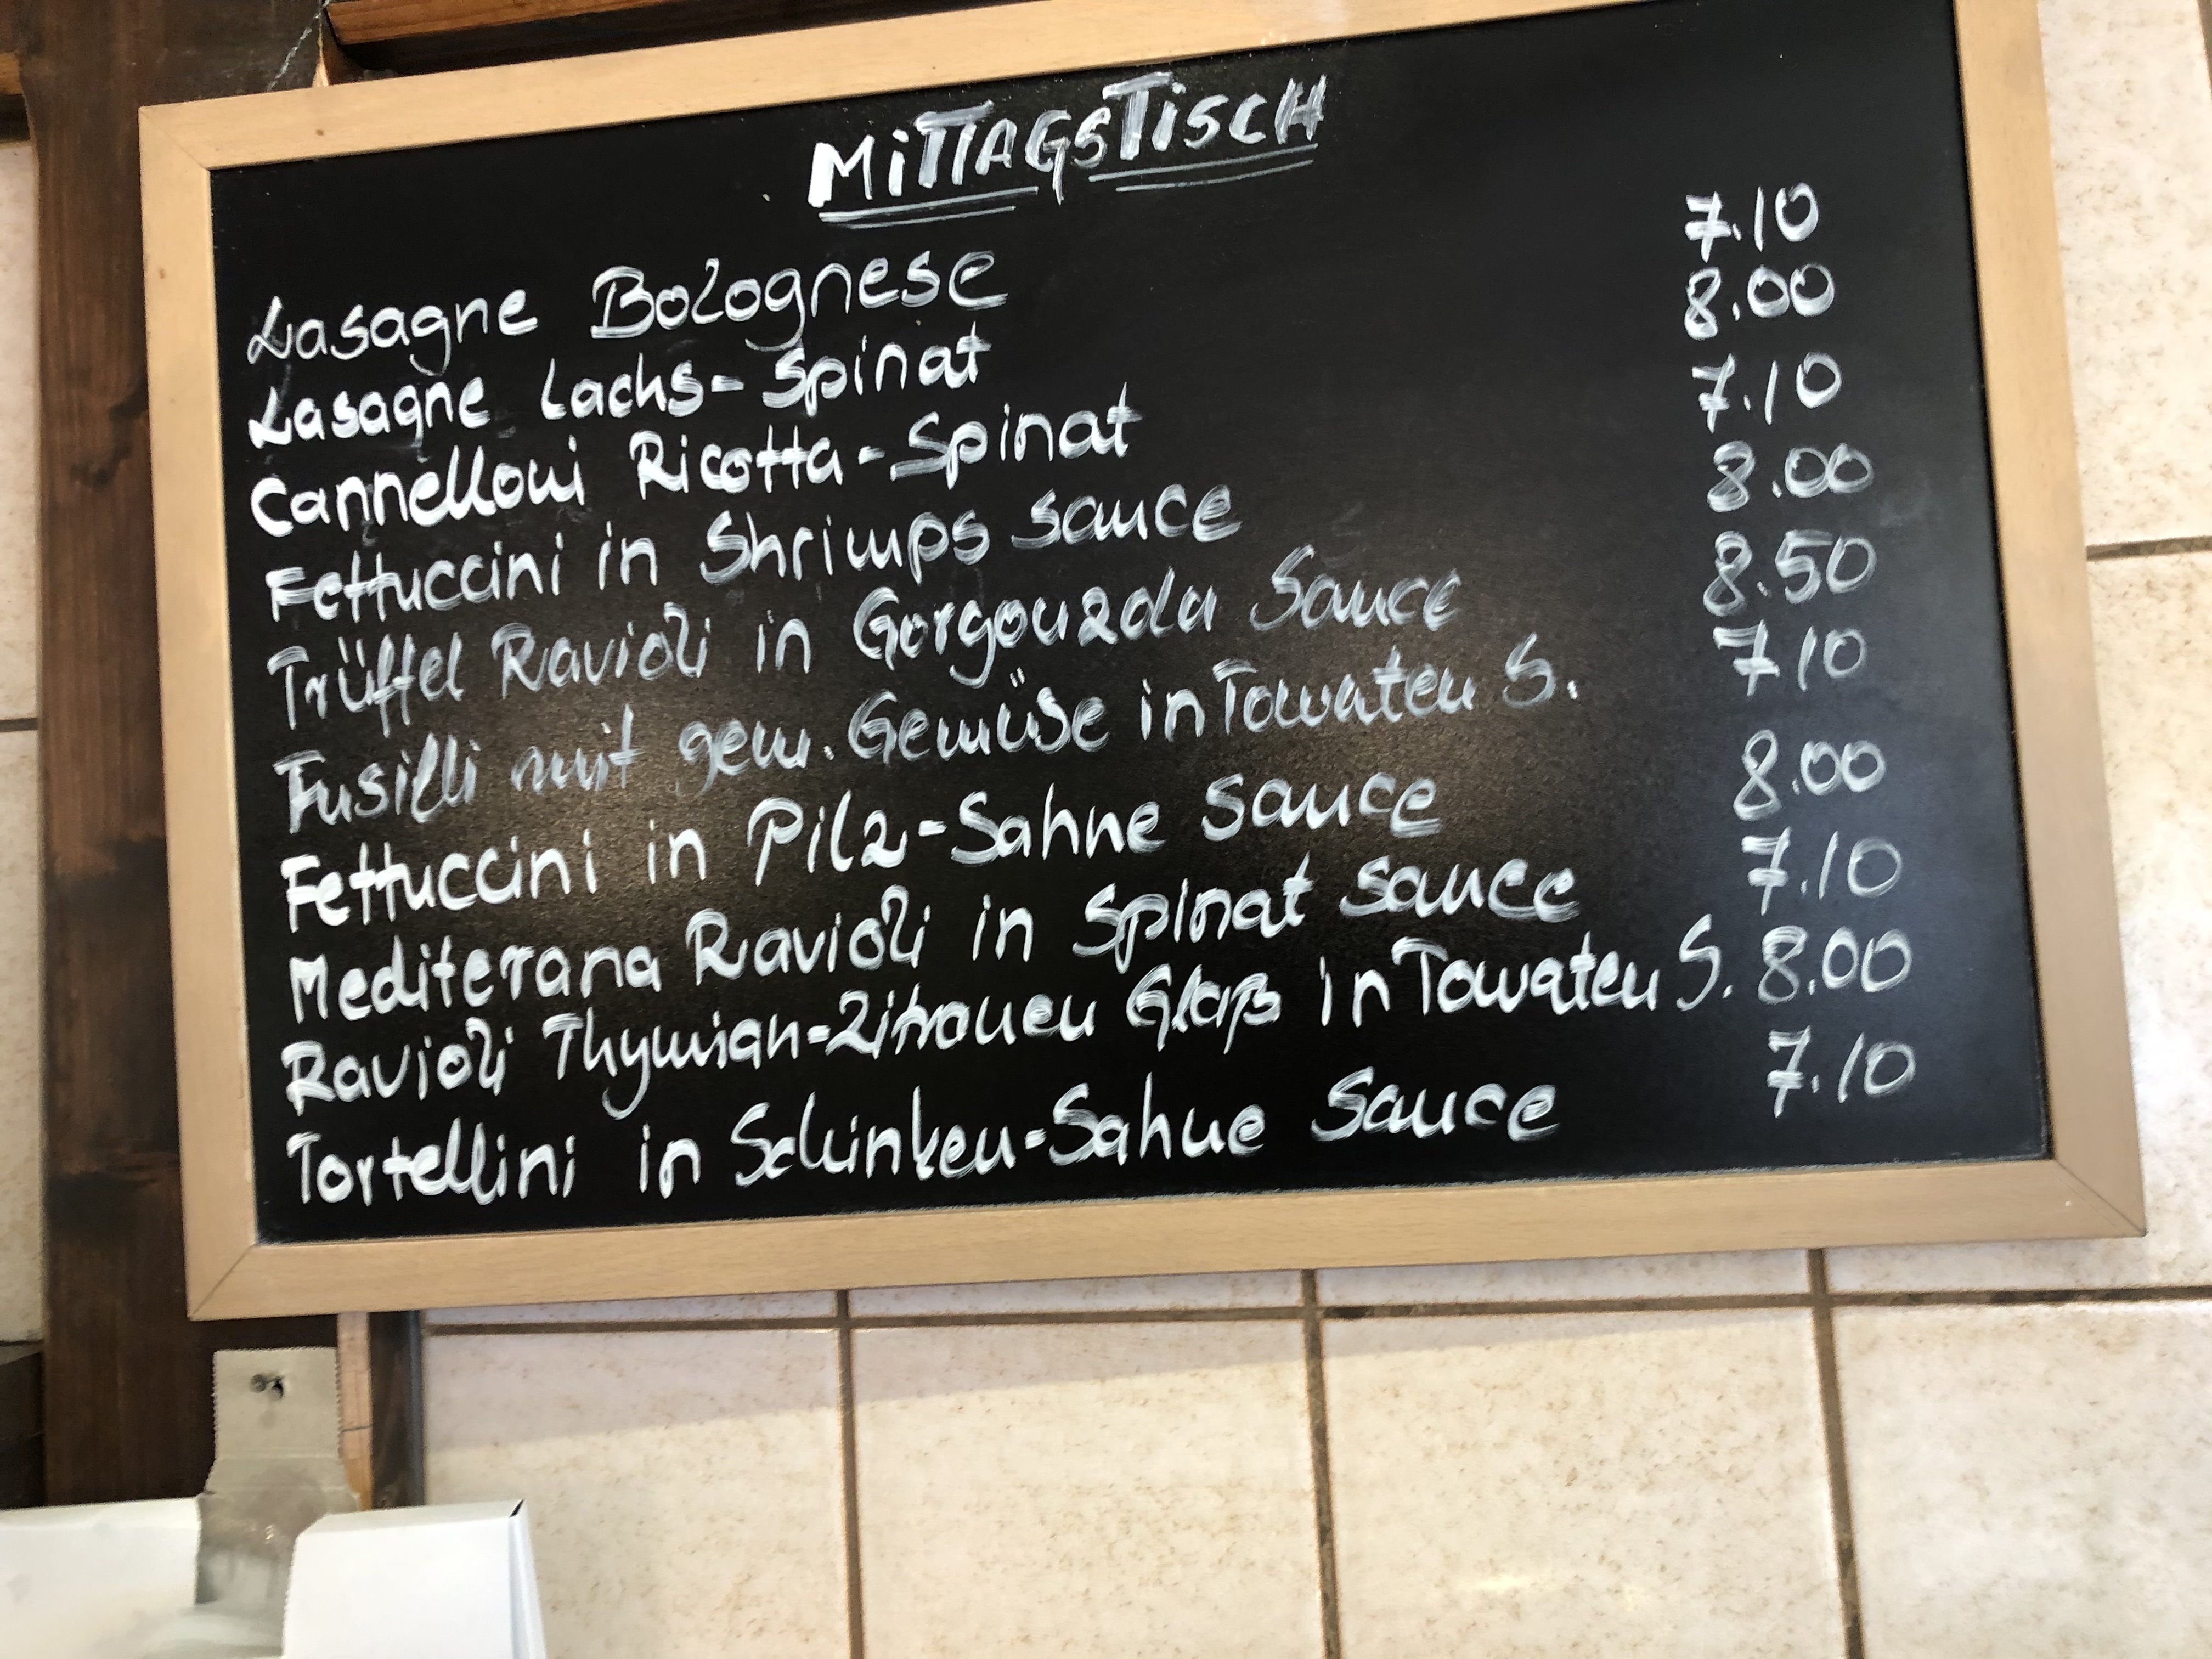 MiTTAGSTiSCH
Lasagne Bolognese 7.10
Lasagne Lachs-Spinat 8.00
Cannelloni Ricotta-Spinat 7.10
Fettuccini in Shrimps Sauce 8.00
Trüffel Ravioli in Gorgonzola Sauce 8.50
Fusilli mit gem. Gemüse in Tomaten S. 7.10
Fettuccini in Pilz-Sahne Sauce 8.00
Mediterana Ravioli in Spinat Sauce 7.10
Ravioli Thymian-Zitronen in Tomaten S. 8.00
Tortellini in Schinken-Sahne Sauce 7.10